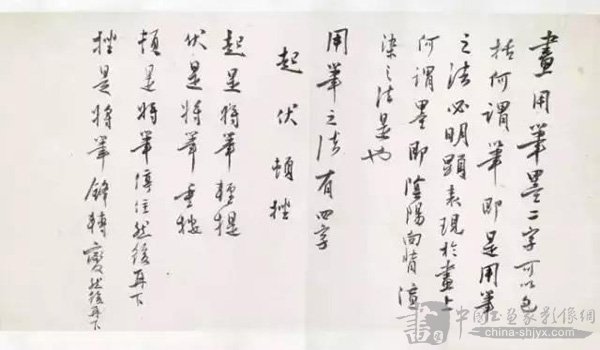 畫用筆墨二字可以包
括何謂筆即是用筆
之法必明顯表現於畫上
何謂墨即陰陽向背渲
染之法是也
用筆之法有四字
起伏頓挫
起是將筆輕提
伏是將筆重按
頓是將筆停住然後再下
挫是將筆鋒轉變然後再下
書
中國书画家影像網
china-shjyx.com